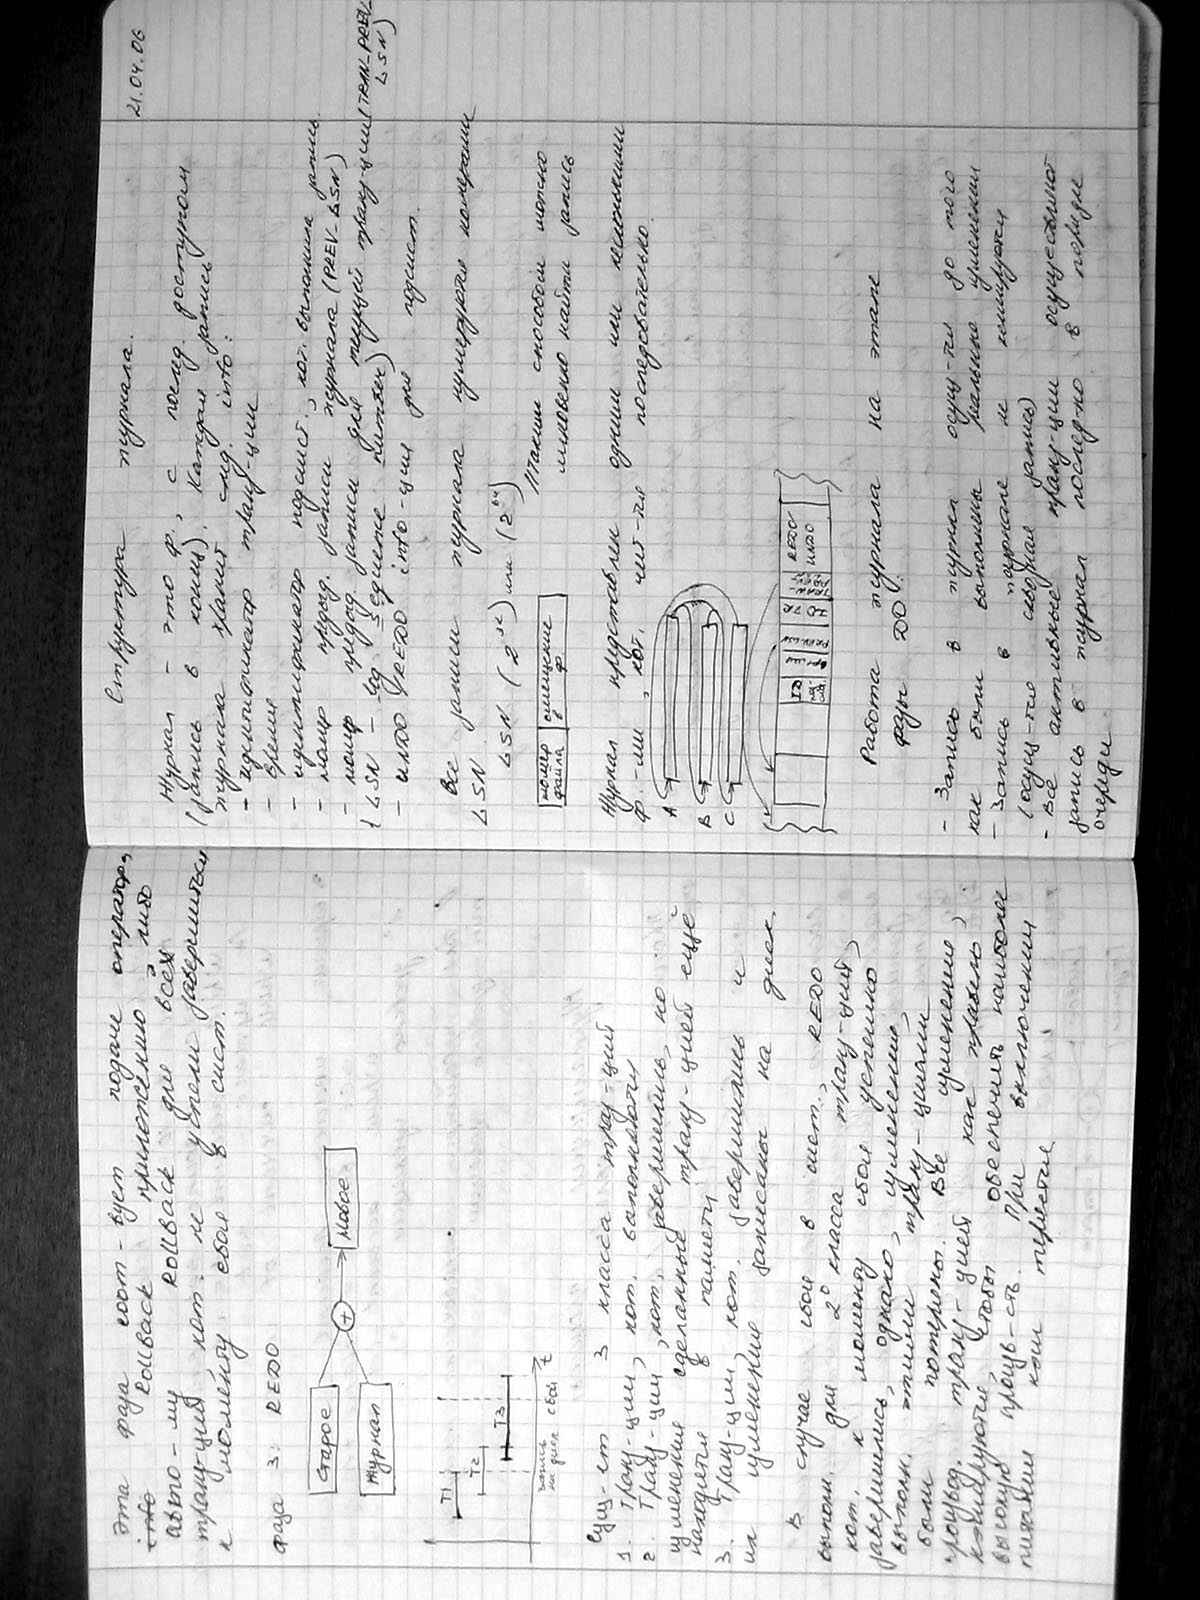 Эта фаза соот-вует подаче оператора
Rollback приложению либо
авто-му Rollback для всех
транз-ций, кот. не успели завершиться
к моменту сбоя в сист.
Фаза 3: REDO
Старое
Журнал
+
Новое
T1
T2
T3
запись
на диск
сбой
t
Сущ-ет 3 класса тран-ций
1. Транз-ции, кот. выполняются
2. Транз-ции, кот. завершились, но
изменения сделанные транз-цией ещё
находятся в памяти
3. Транз-ции, кот. завершились и
их изменения записаны на диск
В случае сбоя в сист., REDO
выполн. для 2о класса транз-ций,
кот. к моменту сбоя успешно
завершились, однако, изменения,
выполн. этими транз-циями
были потеряны. Все изменения,
произвед. транз-цией как правило,
кэшируются, чтобы обеспечить наиболее
высокую произв-сть. При включении
питания кэш теряется
21.04.06
Структура журнала.
Журнал - это ф., с послед. доступом
(запись в конец). Каждая запись
журнала хранит след. info:
- идентификатор транз-ции
- время
- идентификатор подсист., кот. выполнила запись
- номер предыд. записи журнала (PREV_LSN)
- номер предыд. записи для текущей транз-ции (TRAN_PREV_
LSN)
(LSN - Log Sequence number)
- UNDO/REDO info-ция для подсист.
Все записи журнала нумеруются номерами
LSN
LSN (2^32) или (2^64)
номер файла
смещение в ф.
Таким способом можно
мгновенно найти запись
Журнал представлен одним или несколькими
ф.-ми, кот. чит-тся последовательно.
A
B
C
ID
время
PREV LSN
ID TR
TRAN-PREV
REDO
UNDO
Работа журнала на этапе
фазы DO.
- Запись в журнал осущ-тся до того
как были выполнены реальные изменения
- Запись в журнале не кэшируются
(осущ-тся сквозная запись)
- Все активные транз-ции осуществляют
запись в журнал послед-но в порядке
очереди.